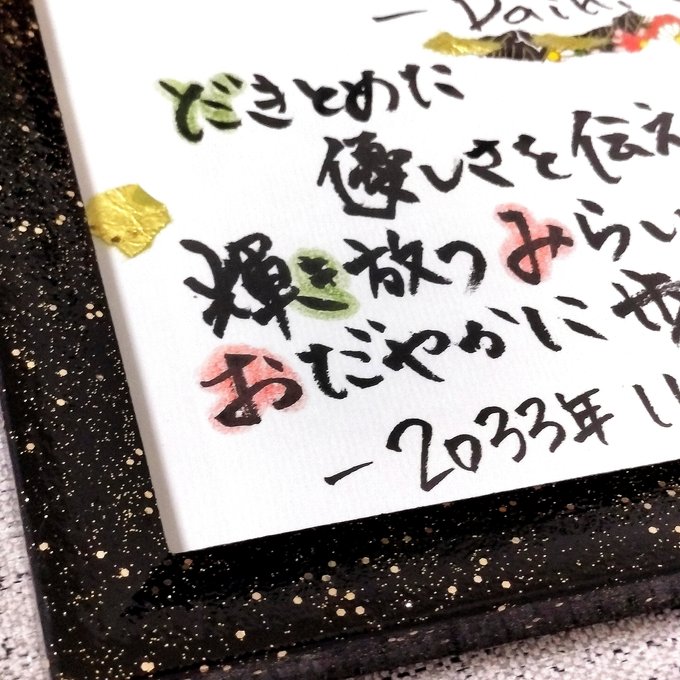 - Daiki
だきとめた
優しさを伝え
輝き放つみらい
おだやかに
-2033年 11